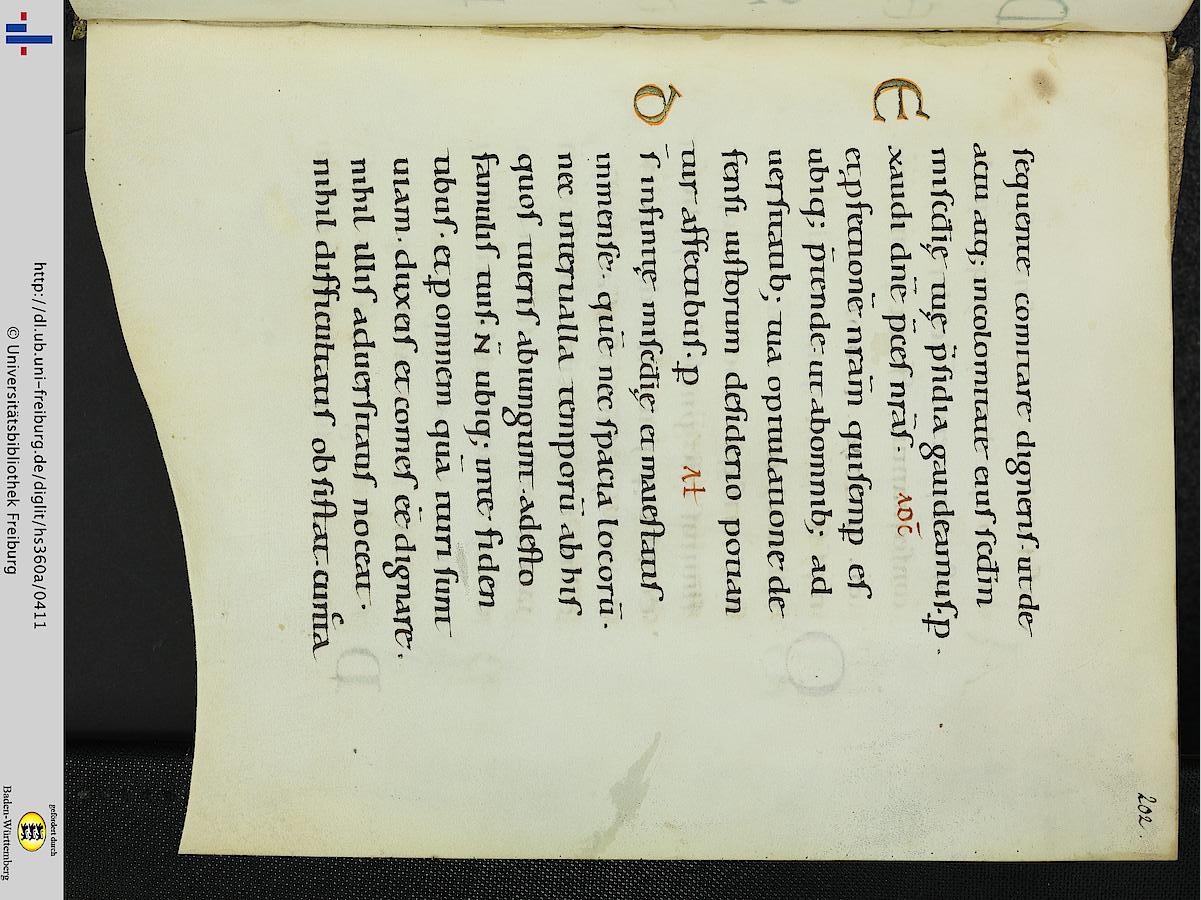 202.
sequente comitare digneris· ut de
actu atq; incolomitate eius scđm
misc̄dię tuę p̄sidia gaudeamus·p̱.
Exaudi dn̄e p̄ces nr̄as· 
et ꝑfectione nr̄am qui semꝑ es
ubiq; p̄tende· ut ab omnib; ad
uersitatib; tua opitulatione de
fensi iustorum desiderio potian
tur affectibus·ꝑ
Ds̄ infinitę misc̄dię et maiestatis
inmense· quē nec spacia locorū·
nec interualla temporū ab his
quos tueris abiungunt· adesto
famulis tuis· N̄ ubiq; inte fiden
tibus· et ꝑ omnem qua ituri sunt
uiam· dux eis et comes eē dignare·
nihil illis aduersitatis noceat·
nihil difficultatis obsistat· cuncta
http://dl.ub.uni-freiburg.de/diglit/hs360a/0411
© Universitätsbibliothek Freiburg
gefördert durch
Baden-Württemberg